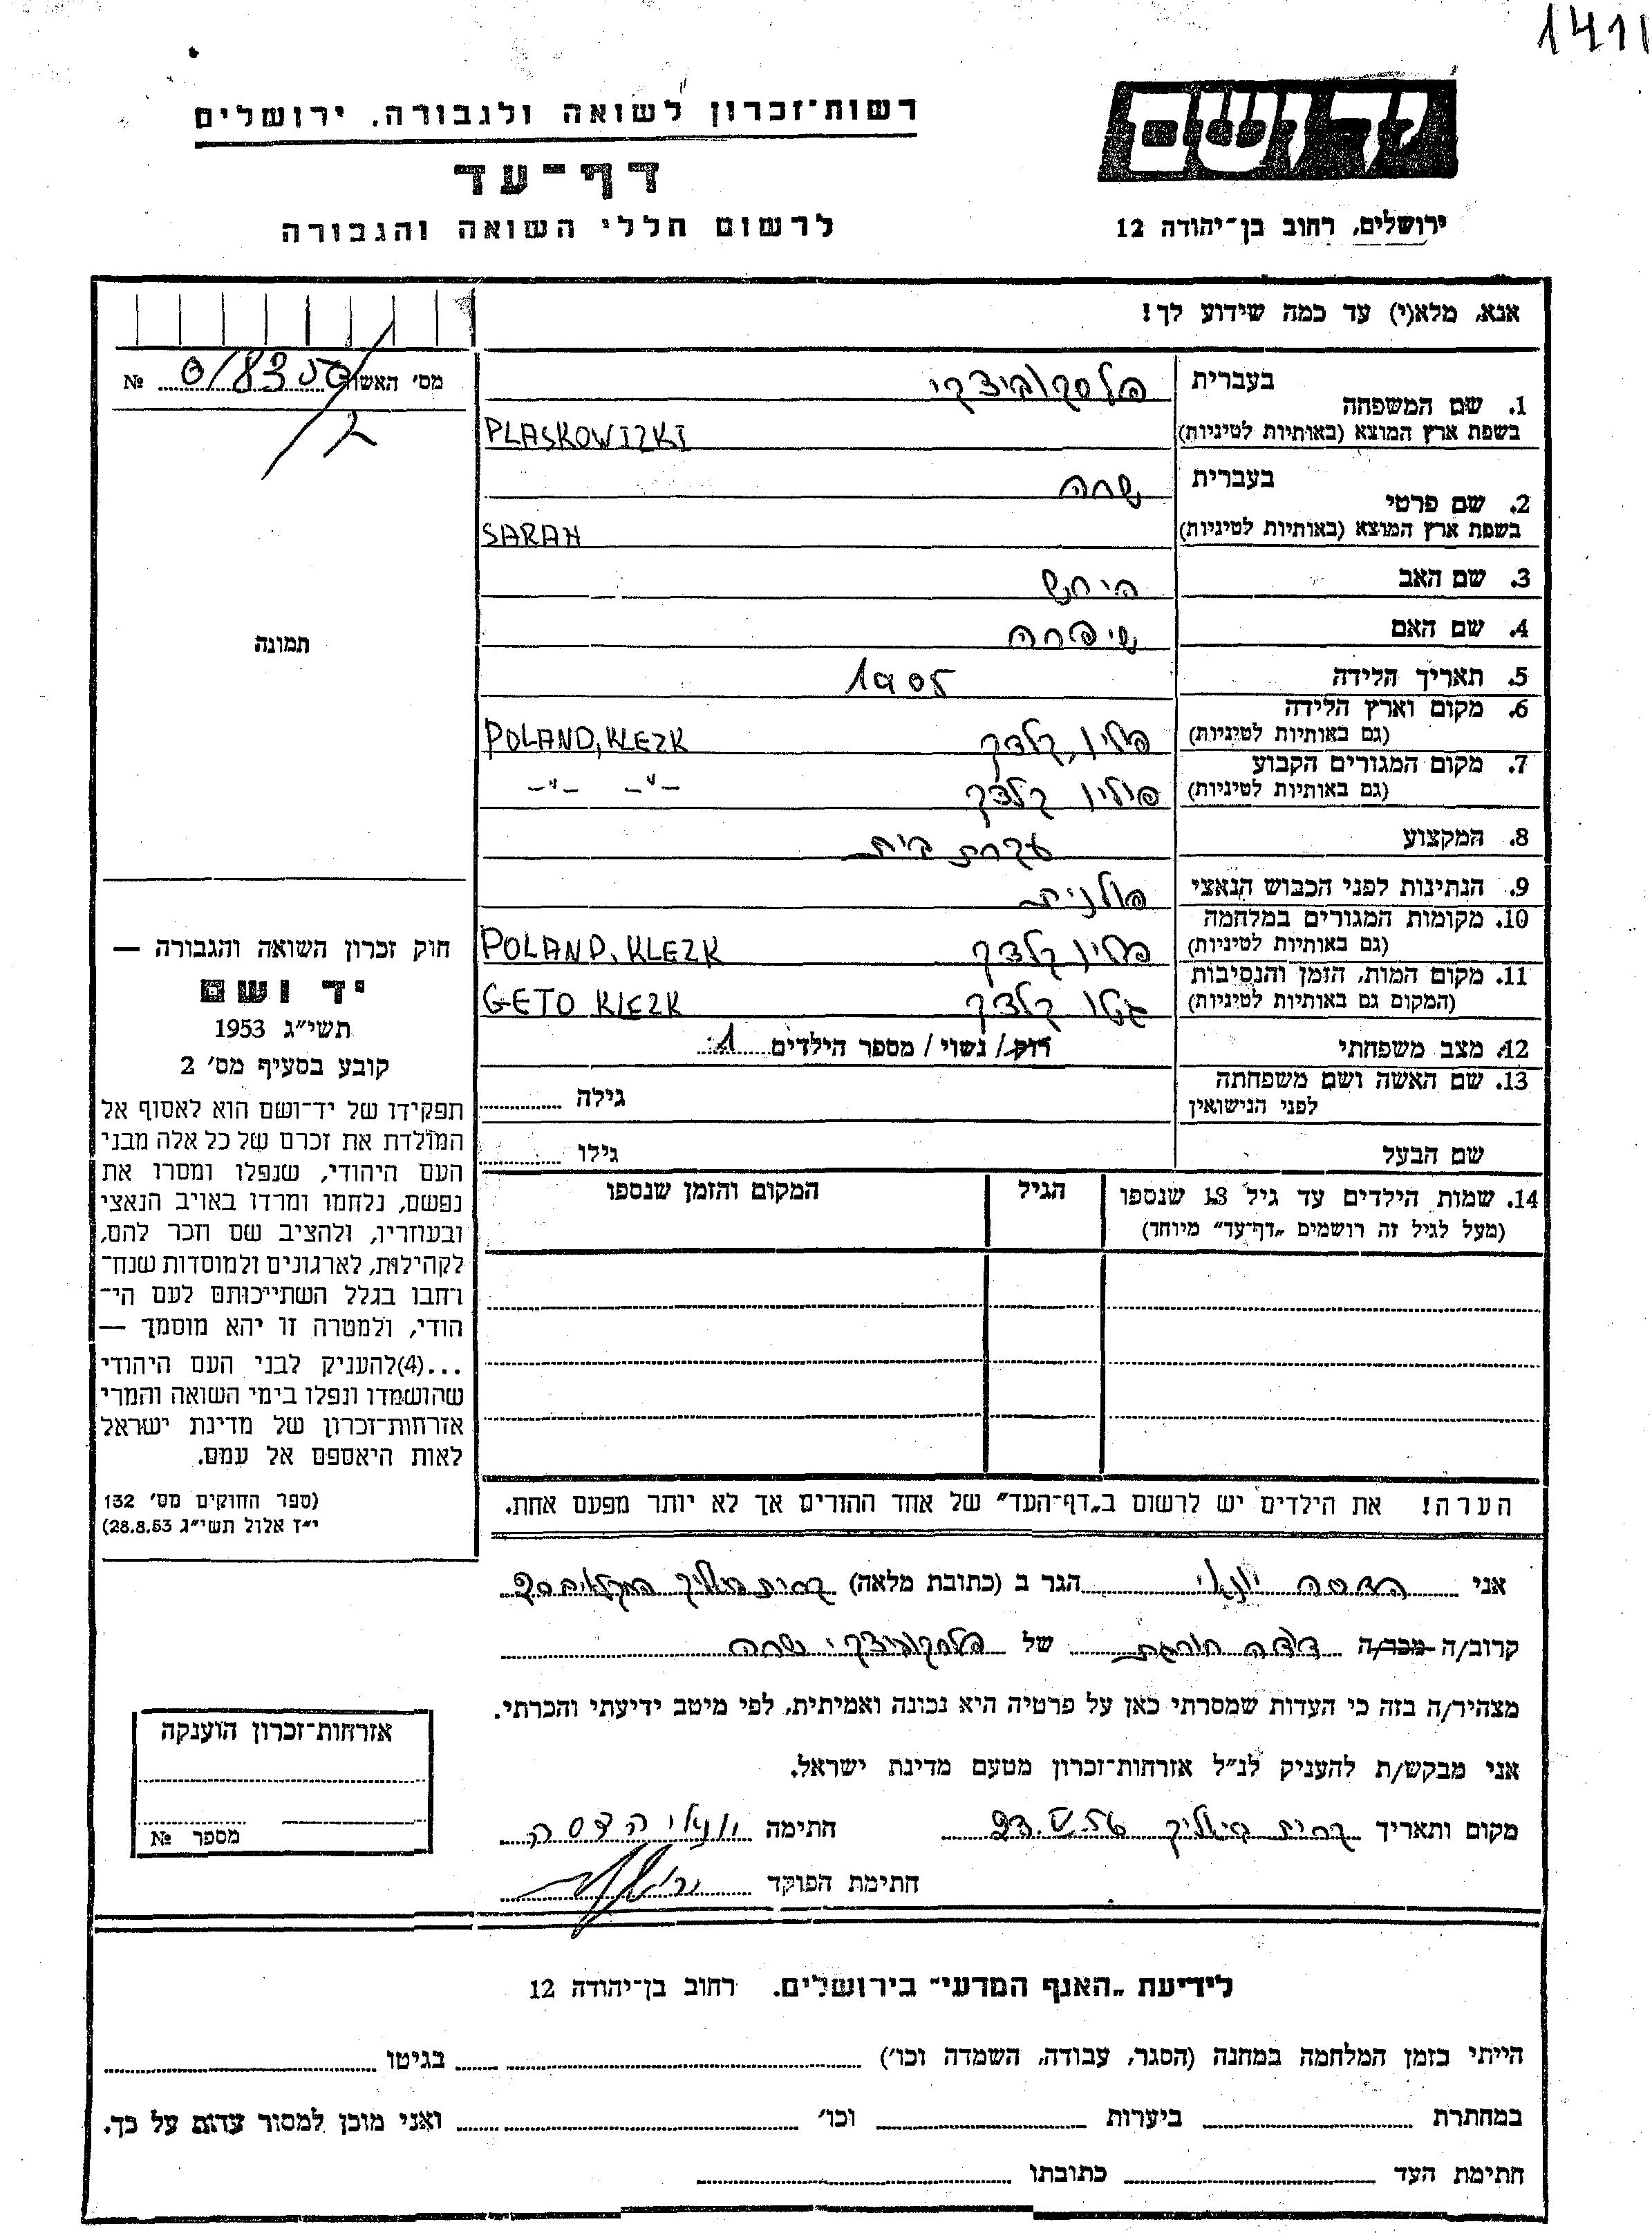 1411
יד ושם
רשות־זכרון לשואה ולגבורה, ירושלים
דף־עד
ירושלים, רחוב בן־יהודה 12
לרשום חללי השואה והגבורה
אנא, מלא(י) עד כמה שידוע לך!
מס׳ האשה № 0/8350
1. שם המשפחה
בעברית פלסקוביצקי
בשפת ארץ המוצא (באותיות לטיניות) PLASKOWIZKI
2. שם פרטי
בעברית שרה
בשפת ארץ המוצא (באותיות לטיניות) SARAH
3. שם האב הירש
4. שם האם שיפרה
5. תאריך הלידה 1905
6. מקום וארץ הלידה
(גם באותיות לטיניות) פולין, קלצק POLAND, KLEZK
7. מקום המגורים הקבוע
(גם באותיות לטיניות) פולין קלצק -"- -"-
8. המקצוע עקרת בית
9. הנתינות לפני הכבוש הנאצי פולנית
10. מקומות המגורים במלחמה
(גם באותיות לטיניות) פולין קלצק POLAND, KLEZK
11. מקום המות, הזמן והנסיבות
(המקום גם באותיות לטיניות) גטו קלצק GETO KLEZK
12. מצב משפחתי רווק/ נשוי/ מספר הילדים 1
13. שם האשה ושם משפחתה
לפני הנישואין גילה
שם הבעל גילו
14. שמות הילדים עד גיל 18 שנספו
(מעל לגיל זה רושמים „דף־עד״ מיוחד)
הגיל
המקום והזמן שנספו
הערה! את הילדים יש לרשום ב„דף־העד״ של אחד ההורים אך לא יותר מפעם אחת.
תמונה
חוק זכרון השואה והגבורה —
יד ושם
תשי״ג 1953
קובע בסעיף מס׳ 2
תפקידו של יד־ושם הוא לאסוף אל
המולדת את זכרם של כל אלה מבני
העם היהודי, שנפלו ומסרו את
נפשם, נלחמו ומרדו באויב הנאצי
ובעוזריו, ולהציב שם וזכר להם,
לקהילות, לארגונים ולמוסדות שנח־
רבו בגלל השתייכותם לעם הי־
הודי, ולמטרה זו יהא מוסמך —
...(4)להעניק לבני העם היהודי
שהושמדו ונפלו בימי השואה והמרי
אזרחות־זכרון של מדינת ישראל
לאות היאספם אל עמם.
(ספר החוקים מס׳ 132
י״ז אלול תשי״ג 28.8.53)
אני הדסה ינאי הגר ב (כתובת מלאה) קרית ביאליק
קרוב/ה מכר/ה דודה חורגת של פלסקוביצקי שרה
מצהיר/ה בזה כי העדות שמסרתי כאן על פרטיה היא נכונה ואמיתית, לפי מיטב ידיעתי והכרתי.
אני מבקש/ת להעניק לנ״ל אזרחות־זכרון מטעם מדינת ישראל.
מקום ותאריך קרית ביאליק 23.V.56 חתימה ינאי הדסה
חתימת הפוקד
אזרחות־זכרון הוענקה
מספר №
לידיעת „האגף המדעי״ בירושלים. רחוב בן־יהודה 12
הייתי בזמן המלחמה במחנה (הסגר, עבודה, השמדה וכו׳) בגיטו
במחתרת ביערות וכו׳ ואני מוכן למסור עדות על כך.
חתימת העד כתובתו